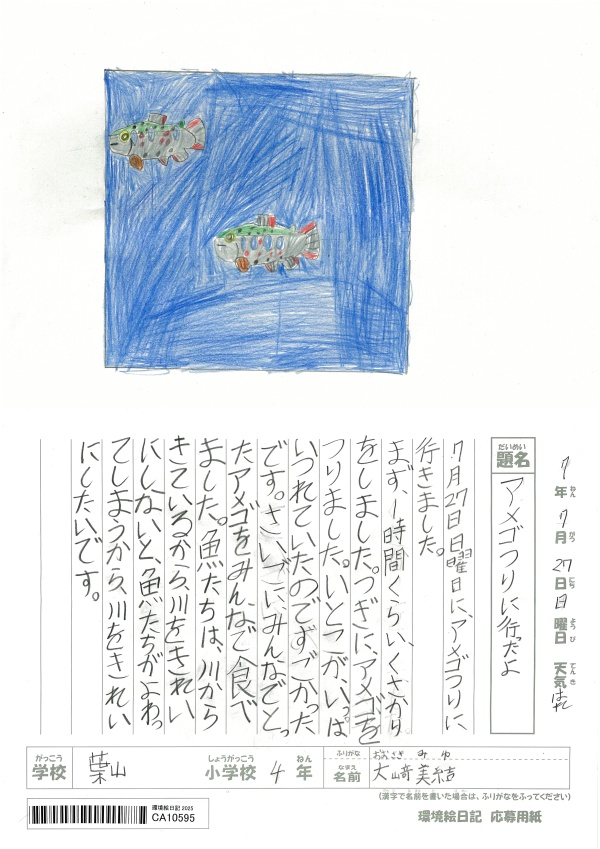 7年7月27日日曜日 天気はれ
ねん がつ にち ようび てんき
だいめい
題名 アメゴつりに行ったよ
7月27日日曜日に、アメゴつりに、
行きました。
まず、1時間くらい、くさかり
をしました。つぎに、アメゴを
つりました。いとこが、いっぱ
いつれていたのですごかった
です。さいごに、みんなでとっ
たアメゴをみんなで食べ
ました。魚たちは、川から
きているから、川をきれい
にしないと、魚たちがよわっ
てしまうから、川をきれい
にしたいです。
がっこう しょうがっこう ねん ふりがな おおさき みゆ
学校 葉山 小学校 4 年 なまえ 名前 大﨑美結
(漢字で名前を書いた場合は、ふりがなをふってください)
環境絵日記 2025
CA10595
環境絵日記 応募用紙